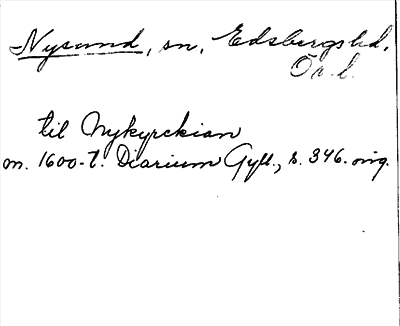 Nysund, sn, Edsbergs hd.
Ör. l.
til Nykyrckian
m. 1600-t. Diarium Gyll., s. 346. orig.